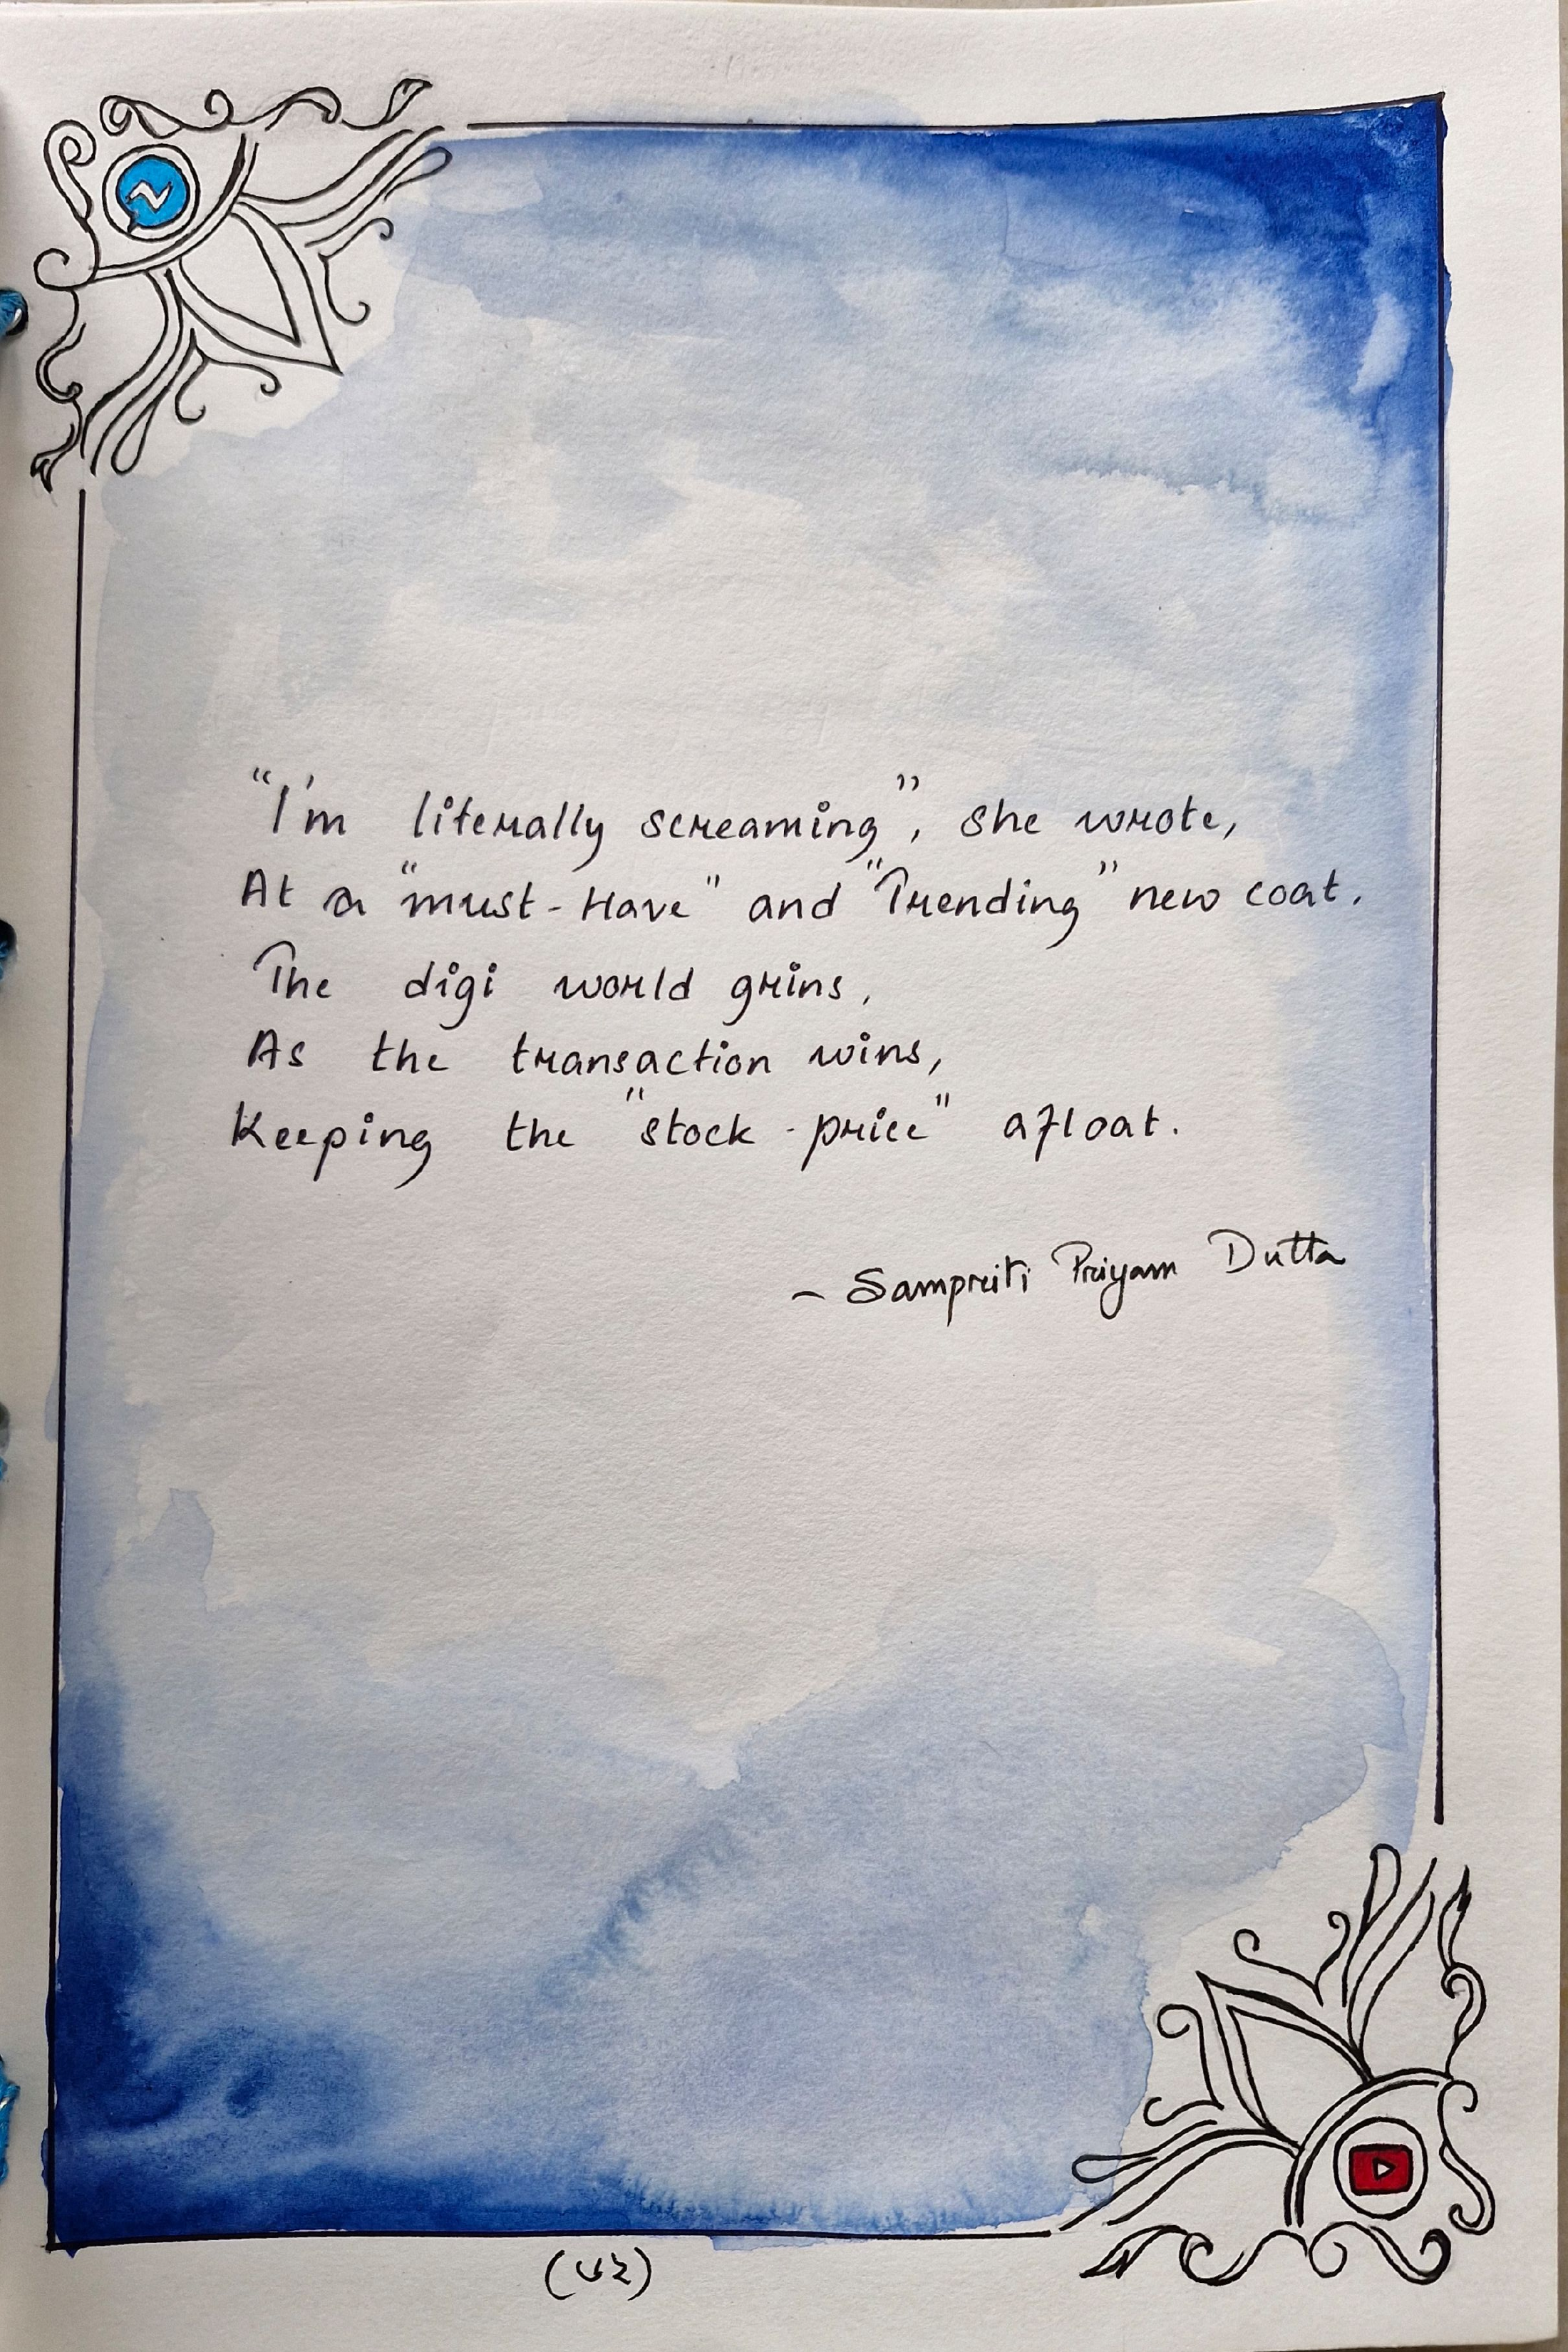 "I'm literally screaming", she wrote,
At a "must-Have" and "Trending" new coat.
The digi world grins,
As the transaction wins,
Keeping the "stock-price" afloat.
~ Sampriti Priyam Dutta